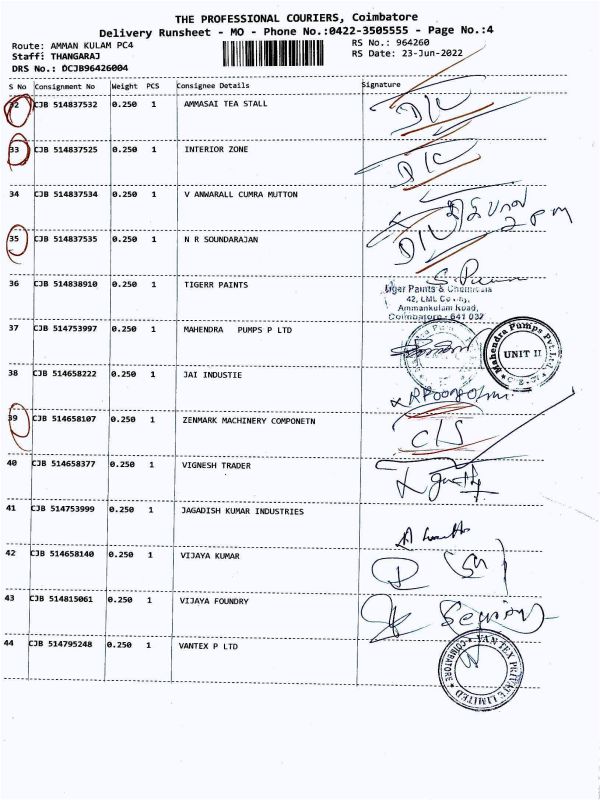 THE PROFESSIONAL COURIERS, Coimbatore
Delivery Runsheet - MO - Phone No.:0422-3505555 - Page No.:4
Route: AMMAN KULAM PC4 RS No.: 964260
Staff: THANGARAJ RS Date: 23-Jun-2022
DRS No.: DCJB96426004
S No Consignment No Weight PCS Consignee Details Signature
32 CJB 514837532 0.250 1 AMMASAI TEA STALL D/C
33 CJB 514837525 0.250 1 INTERIOR ZONE D/C
34 CJB 514837534 0.250 1 V ANWARALL CUMRA MUTTON
2 pm
35 CJB 514837535 0.250 1 N R SOUNDARAJAN
36 CJB 514838910 0.250 1 TIGERR PAINTS
Tiger Paints & Chemicals
42, LML Colony,
Ammankulam Road,
Coimbatore - 641 037
37 CJB 514753997 0.250 1 MAHENDRA PUMPS P LTD
Mahendra Pumps Pvt. Ltd.
UNIT II
38 CJB 514658222 0.250 1 JAI INDUSTIE
39 CJB 514658107 0.250 1 ZENMARK MACHINERY COMPONETN
40 CJB 514658377 0.250 1 VIGNESH TRADER
41 CJB 514753999 0.250 1 JAGADISH KUMAR INDUSTRIES
42 CJB 514658140 0.250 1 VIJAYA KUMAR
43 CJB 514815061 0.250 1 VIJAYA FOUNDRY
44 CJB 514795248 0.250 1 VANTEX P LTD
VANTEX PRIVATE LIMITED
COIMBATORE